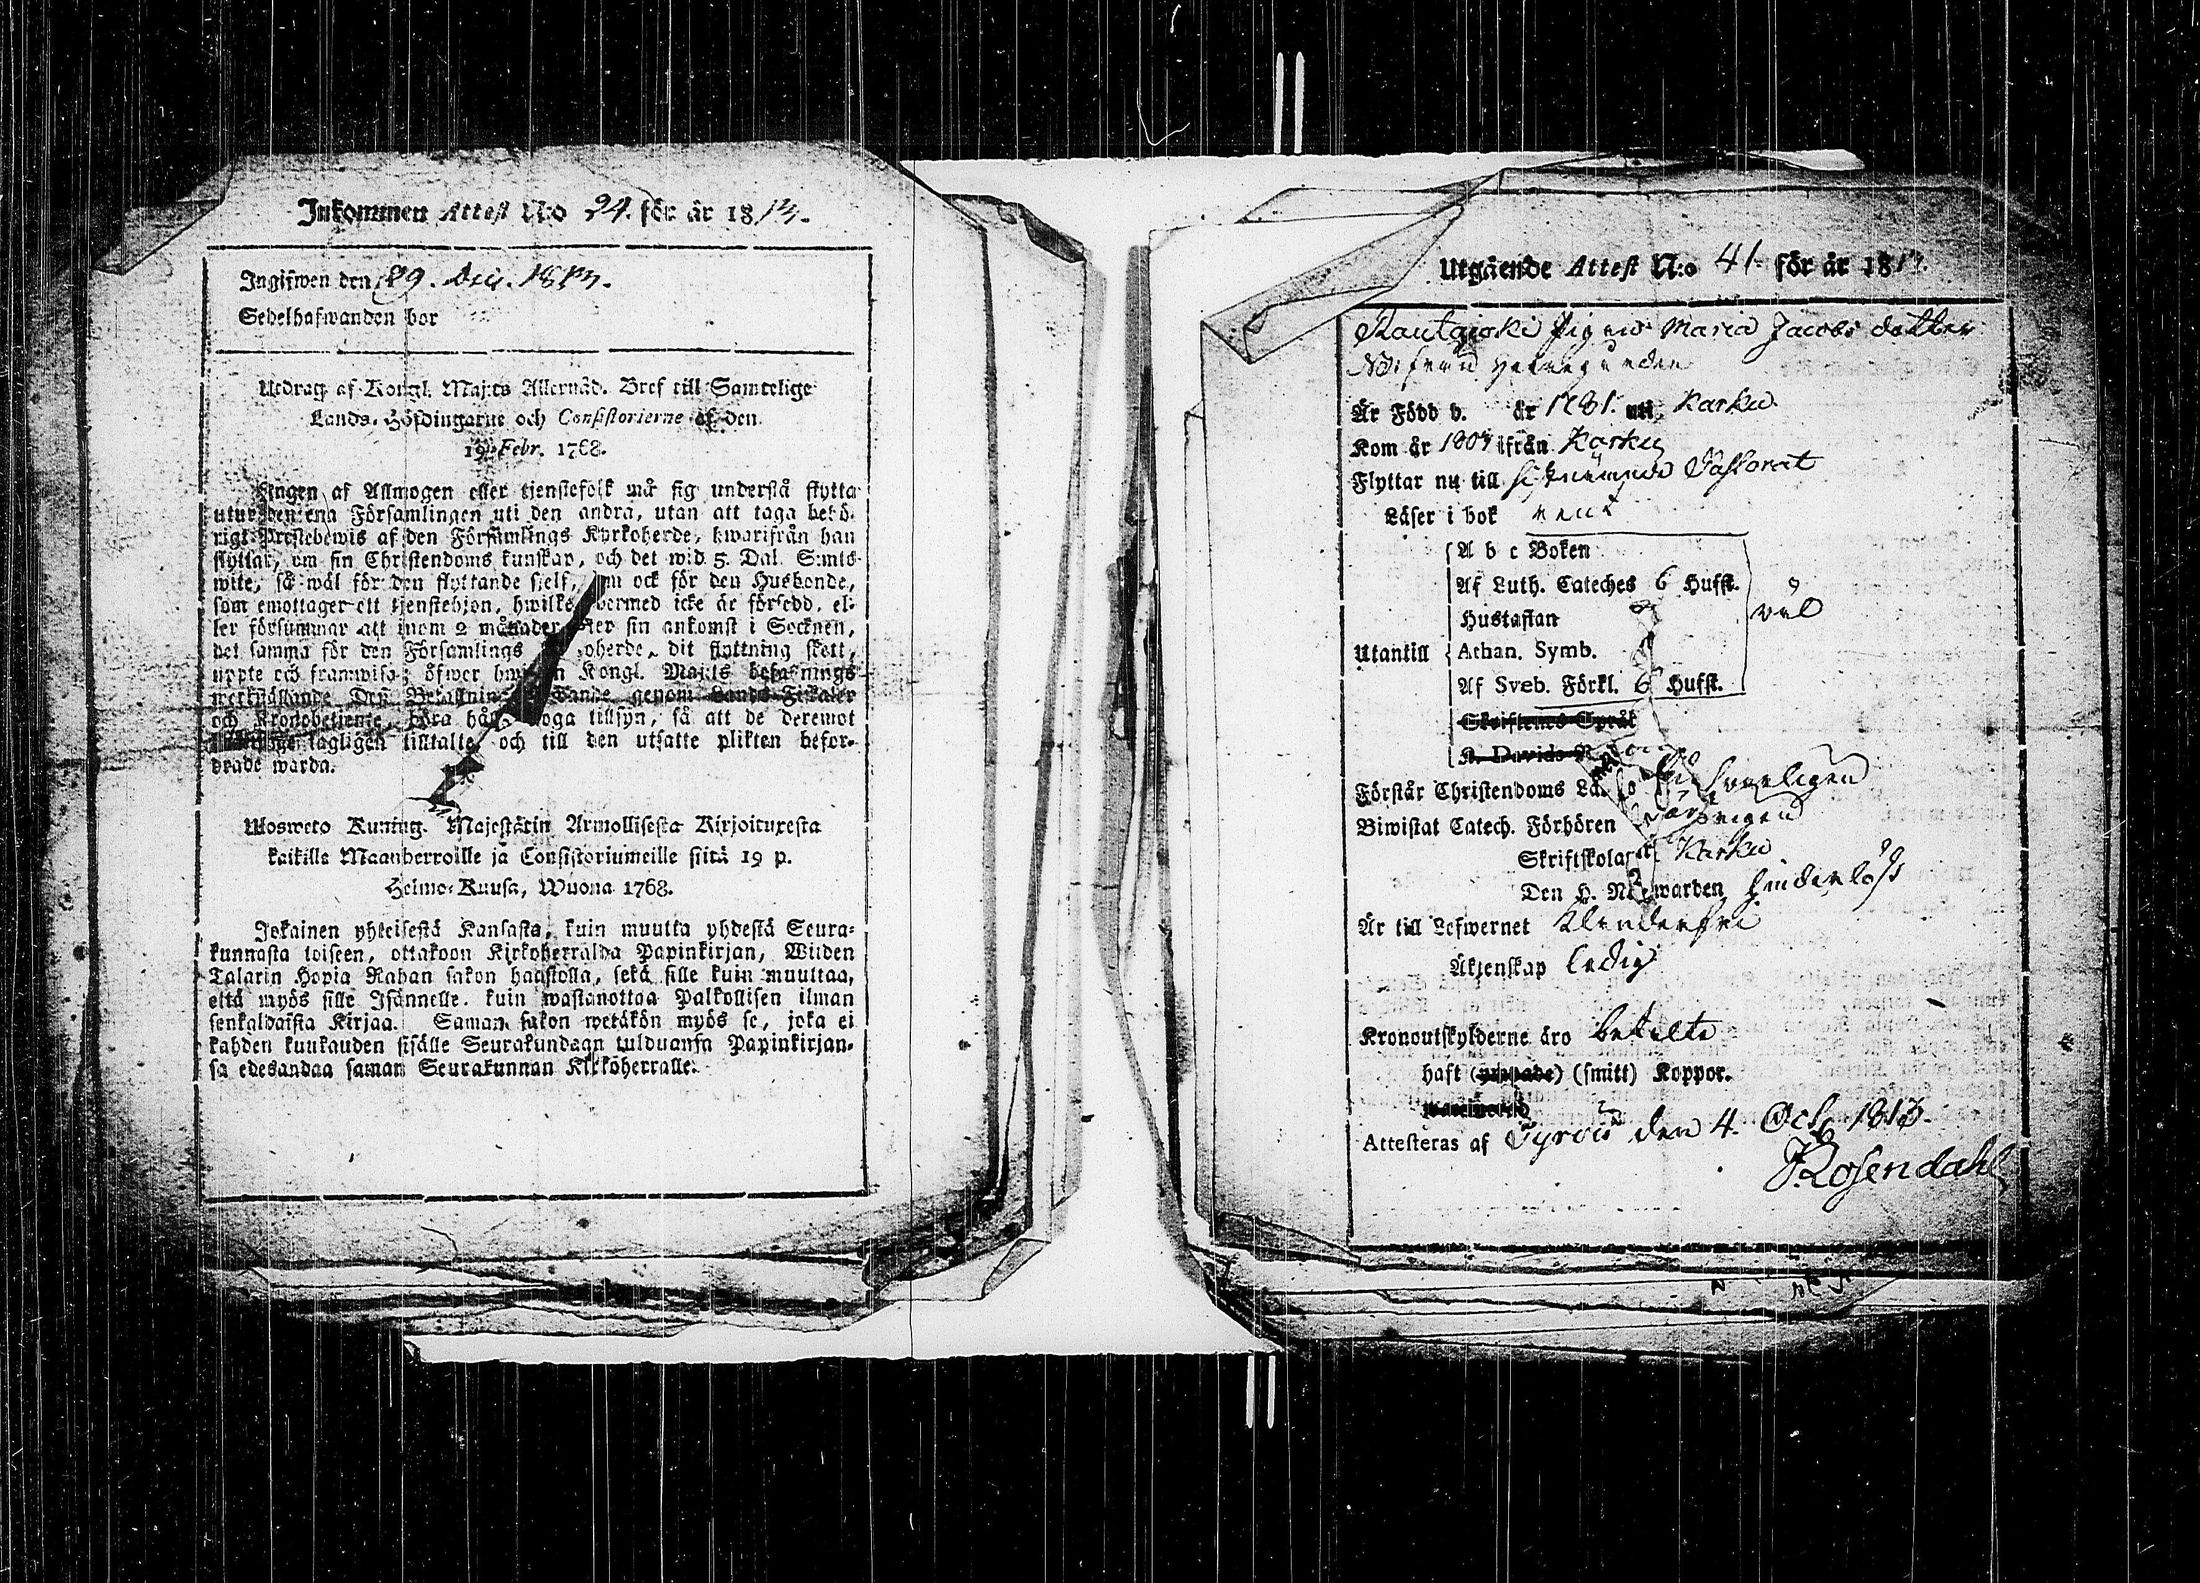 Inkommen Attest N:o 24. för år 1813.
Ingifwen den 29. Dec. 1813.
Sedelhafwanden bor
Utdrag af Kongl. Maj:ts Allernåd. Bref till Samtelige
Lands-Höfdingarne och Consistorierne af den
19 Febr. 1768.
Ingen af Allmogen eller tjenstefolk må sig understå flytta
utur den ena Församlingen uti den andra, utan att taga behö-
rigt Prestebewis af den Församlings Kyrkoherde, hwarifrån han
flyttar, om sin Christendoms kunskap, och det wid 5 Dal. S:mts
wite, så wäl för den flyttande sjelf, som ock för den Husbonde,
som emottager ett tjenstehjon, hwilket dermed icke är försedd, el-
ler försummar att inom 2 månader efter sin ankomst i Socknen,
det samma för den Församlings Kyrkoherde, dit flyttning skett,
uppte och framwisa; öfwer hwilken Kongl. Maj:ts befallnings
werkställande Des Befallningshafwande genom Lands-Fiskaler
och Kronobetjente, böra hålla noga tillsyn, så att de deremot
lagligen tilltalte, och till den utsatte plikten befor-
drade warda.
Ulosweto Kuning. Majestätin Armollisesta Kirjoituxesta
kaikille Maanherroille ja Consistoriumeille siitä 19 p.
Helmo-Kuusa, Wuona 1768.
Jokainen yhteisestä Kansasta, kuin muutta yhdestä Seura-
kunnasta toiseen, ottakoon Kirkoherralda Papinkirjan, Wiiden
Talarin Hopia Rahan sakon haastolla, sekä sille kuin muuttaa,
että myös sille Isännelle, kuin wastanottaa Palkollisen ilman
senkaldaista Kirjaa. Saman sakon wetäkön myös se, joka ei
kahden kuukauden sisälle Seurakundaan tulduansa Papinkirjan-
sa edesandaa saman Seurakunnan Kirkoherralle.
Utgående Attest N:o 41 för år 1813.
Rautajoki Pigan Maria Jacobs dotter
Är Född d. år 1781. uti Karku
Kom år 1807 ifrån Karku
Flyttar nu till Pastorat
Läser i bok rent
A b c Boken
Af Luth. Cateches 6 Hufst.
Hustaflan
väl
Utantill
Athan. Symb.
Af Sveb. Förkl. 6 Hufst.
Skriftenes Språk
K. Davids
Förstår Christendoms Lä. swarligen
Biwistat Catech. Förhören
Skriftskolan i Karku
Den H. Nattwarden hinderlöst
Är till Lefwernet klanderfri
Äktenskap ledig
Kronoutskylderne äro betalte
haft (ympade) (smitt) Koppor.
Attesteras af Tyrvis den 4. Oct. 1813.
Rosendahl